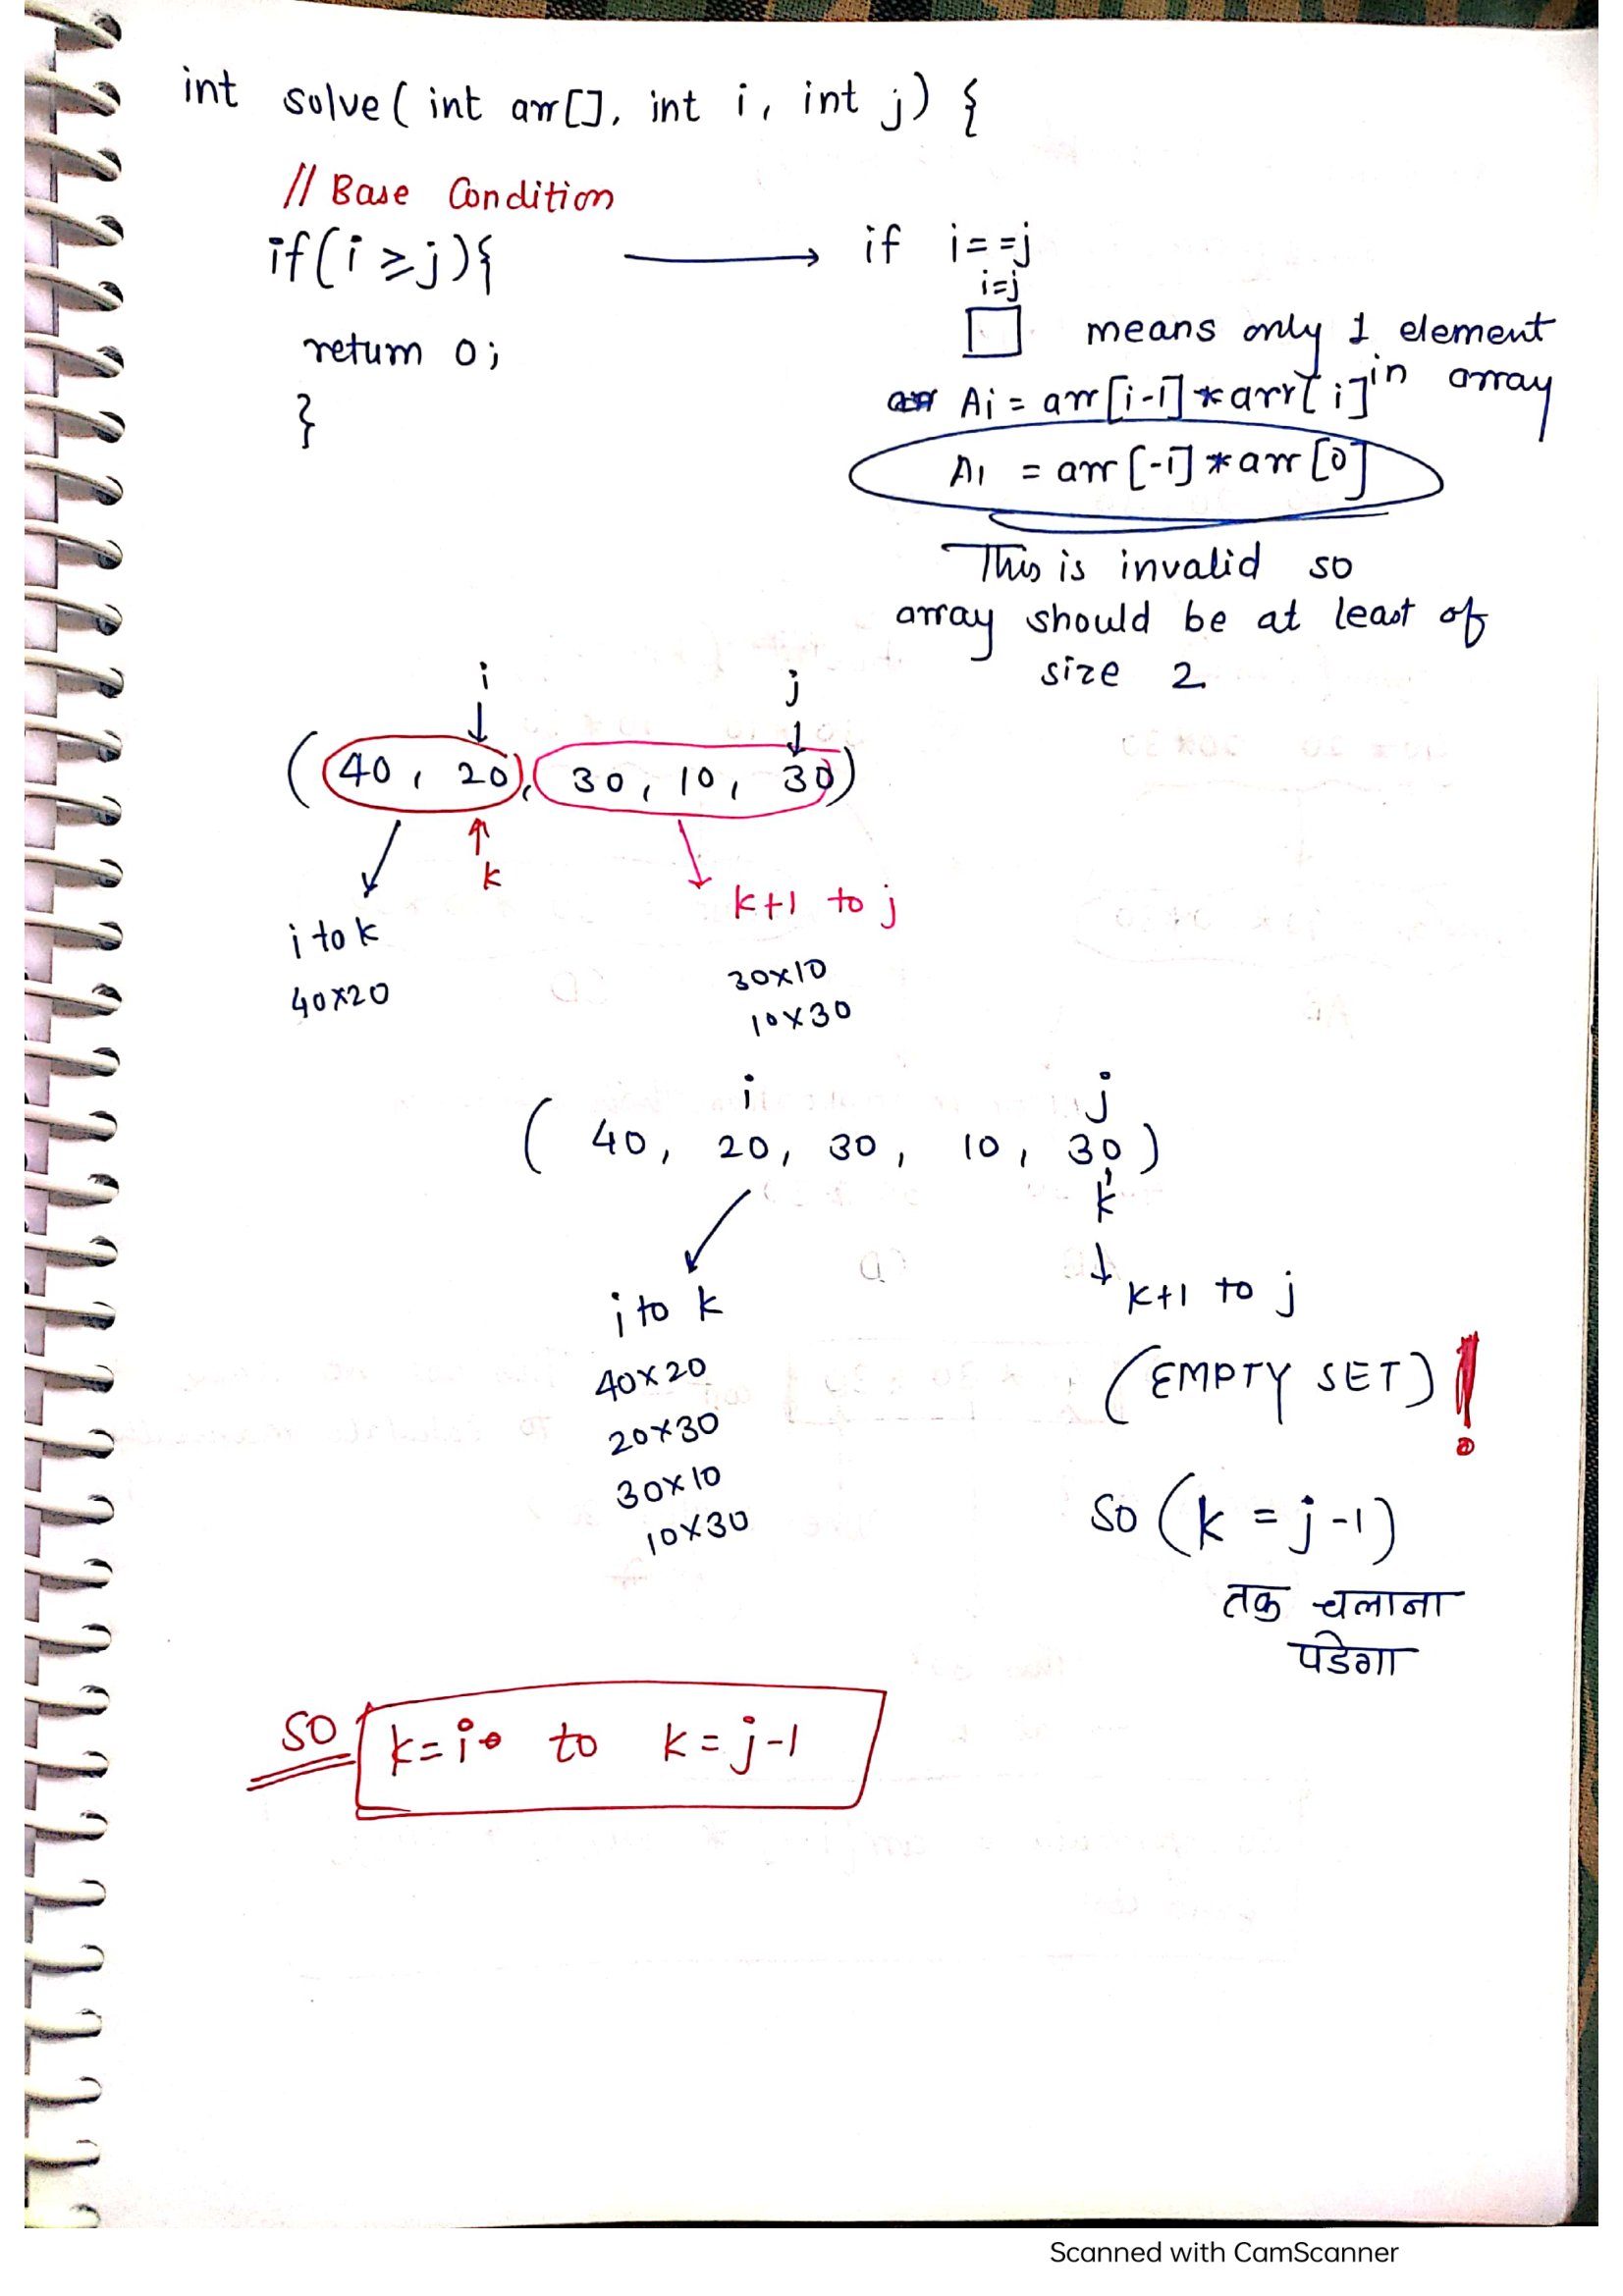 int solve( int arr[], int i, int j) {
// Base Condition
if(i ≥ j){ ⟶ if i==j
i=j
return 0;
}
means only 1 element
in array
Ai = arr[i-1]*arr[i]
A1 = arr[-1]*arr[0]
This is invalid so
array should be at least of
size 2
i j
(40, 20), (30, 10, 30)
k
i to k
k+1 to j
40x20
30x10
10x30
i j
( 40, 20, 30, 10, 30 )
k
i to k
k+1 to j
40x20
20x30
30x10
10x30
(EMPTY SET) !
so (k = j-1)
तक चलाना
पडेगा
SO k=i to k=j-1
Scanned with CamScanner